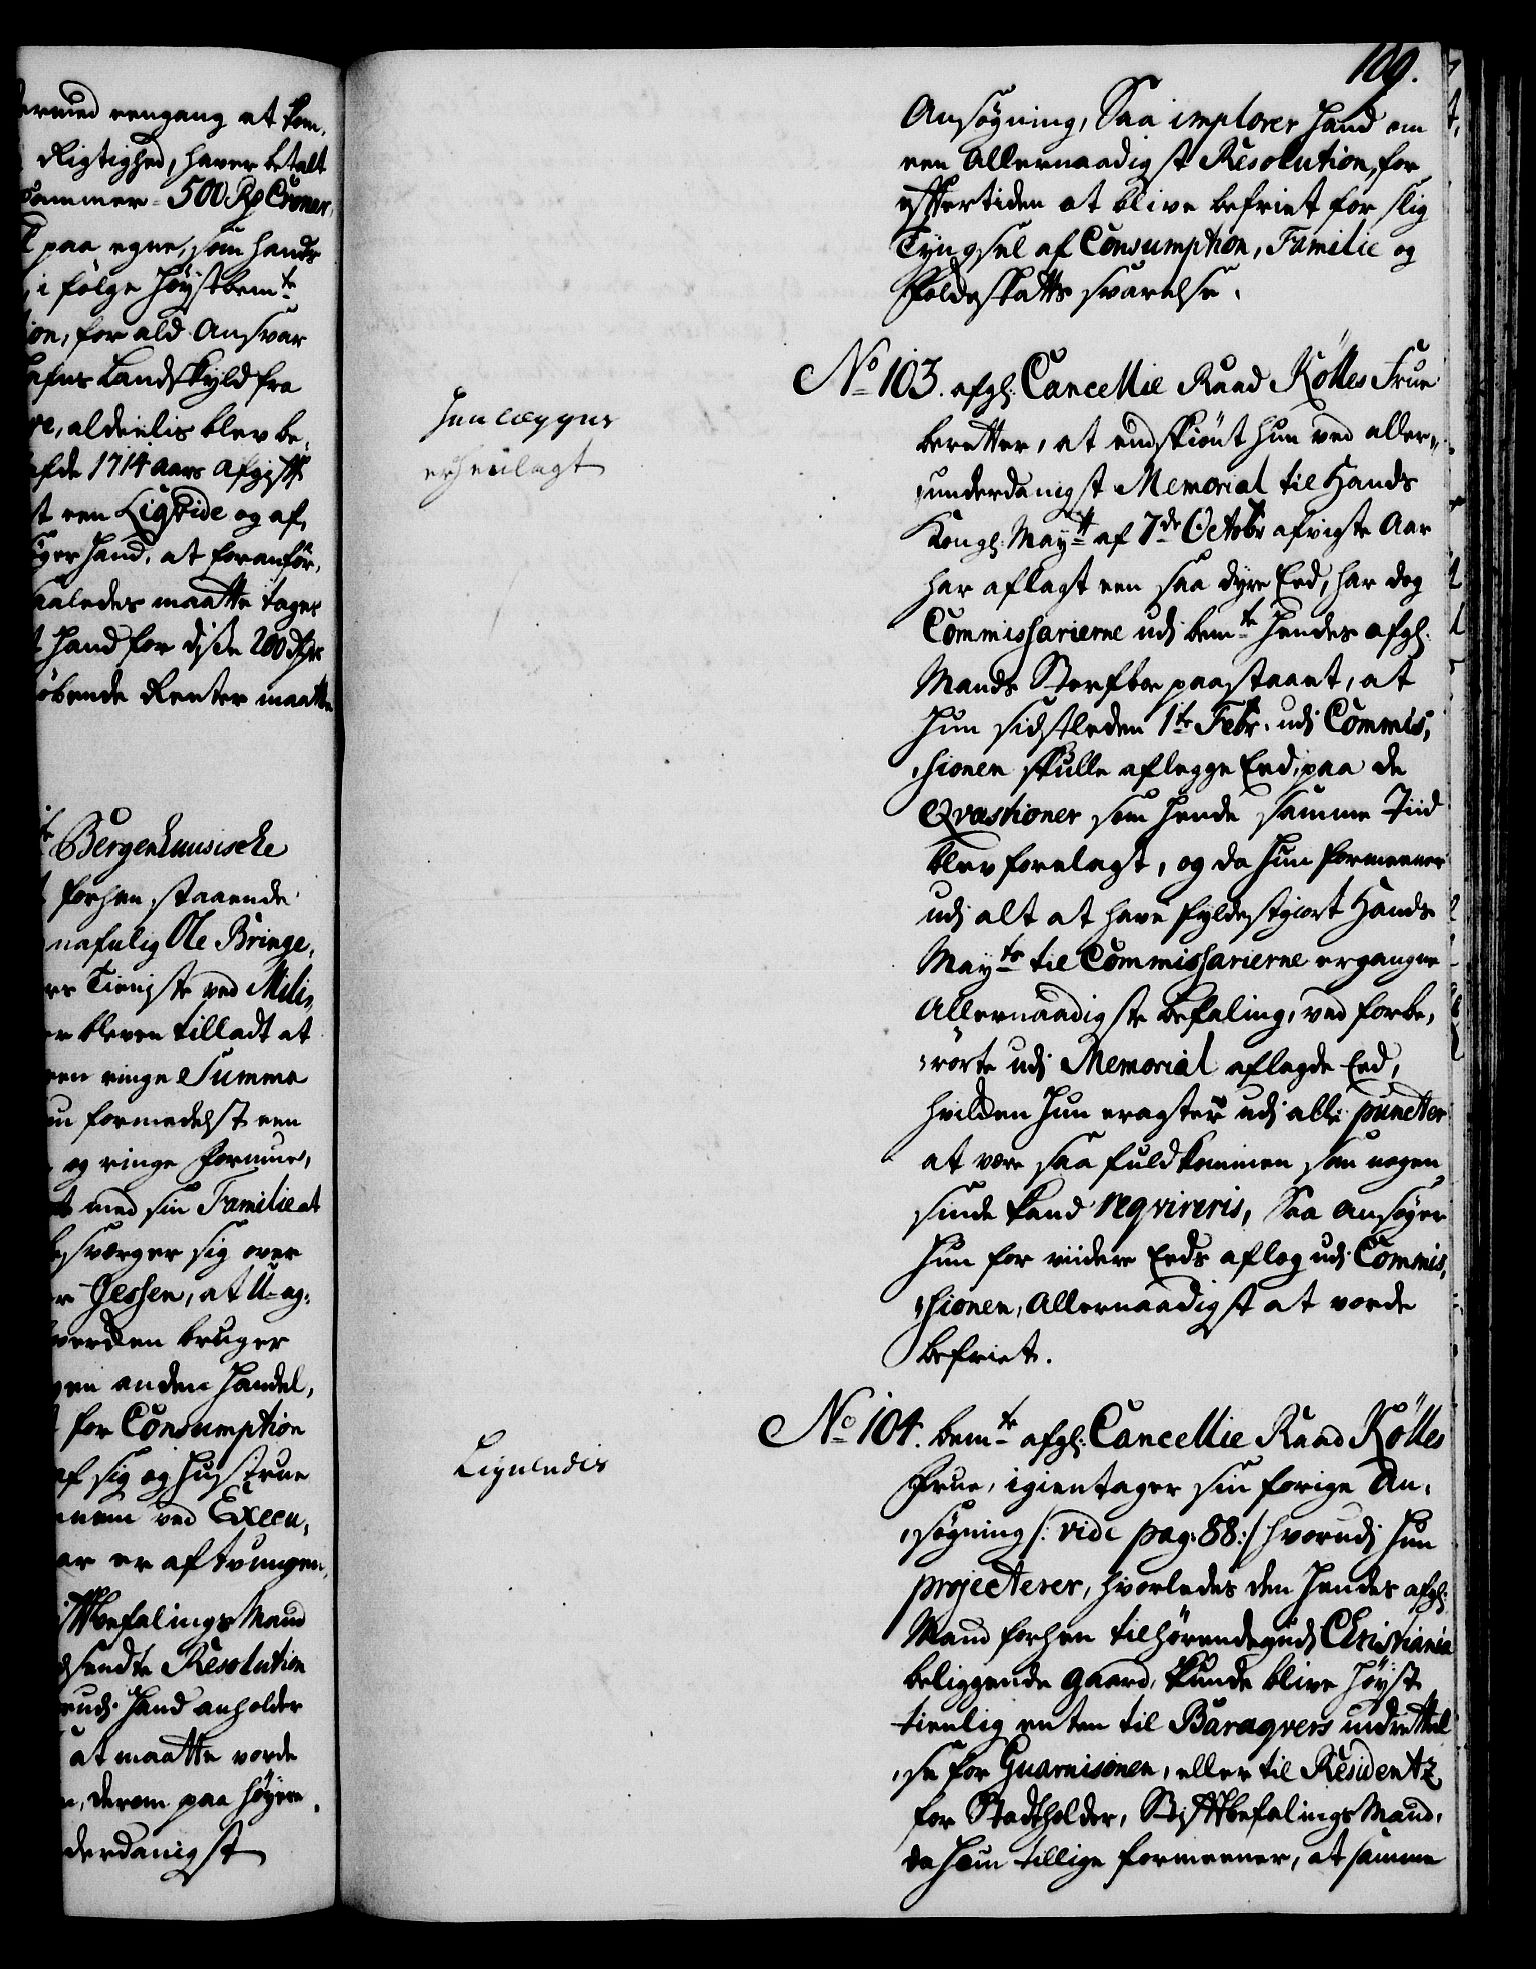 ermed eengang at kom,
Rigtighed, haver betalt
Sammer 500 Rd Croner,
paa egne, som hands
i følge Høystbemte
ion, for ald Ansvar
hafns Landskyld fra
re, aldeelis blev be,
afde 1714 aars afgift
st een Liqvide og af,
ger hand, at foranfør,
saaledes maatte tages
hand for disse 200 Rdr
øbende Renter maatte
Bergenhuusische
forhen staaende
nafnlig Ole Bringe,
rs Tieniste ved Mili,
er bleven tilladt at
een ringe Summa
formedelst een
og ringe formue,
med sin Familie at
besværger sig over
Jessen, at U-ag,
hverken bruger
gen anden Handel,
for Consumption
af sig og Hustrue
nem ved Execu,
ar er aftvungen,
iftbefalings Mand
dsendte Resolution
rudi hand anholder
at maatte vorde
, derom paa høyere
derdanigst
109.
Ansøgning, Saa implorer hand om
een Allernaadigst Resolution, for
eftertiden at blive befriet for slig
Tyngsel af Consumption, Familie og
Foldeskatts svarelse.
No 103. afgl: Cancellie Raad Röttes Frue
Henlægges
er henlagt
beretter, at endskiönt hun ved aller,,
,,underdanigst Memorial til Hands
Kongl: Maytt af 7de Octobr afvigte Aar
har aflagt een saa dyre Eed, har dog
Commissarierne udj bemte Hendes afgl:
Mands Sterfboe paastaaet, at
hun sidstleden 1te Febr. udj Commis,
,sionen skulle aflegge Eed, paa de
Qvæstioner som hende samme Tiid
blev forelagt, og da hun formeener
udj alt at have fyldestgiort Hands
Mayts til Commissarierne ergangne
Allernaadigste befaling, ved forbe,
,rørte udj Memorial aflagde Eed,
hvilken hun eragter udj alle puncter
at være saa fuldkommen som nogen
sinde kand reqvireris, Saa ansøger
hun for viidere Eeds afleg udj Commis,
,sionen, Allernaadigst at vorde
befriet.
No 104. bemte afgl: Cancellie Raad Röttes
Ligeledis
Frue, igientager sin forige An,
,søgning /: vide pag: 88 :/ hvorudj hun
projecterer, hvorledes den Hendes afgl:
Mand forhen tilhörende, udj Christiania
beliggende Gaard, kunde blive Höyst
tienlig enten til Baraqvers indrettel
,se for Guarnisonen, eller til Residentz
for Stadtholder, Stiftbefalings Mand,
da hun tillige formeener, at samme